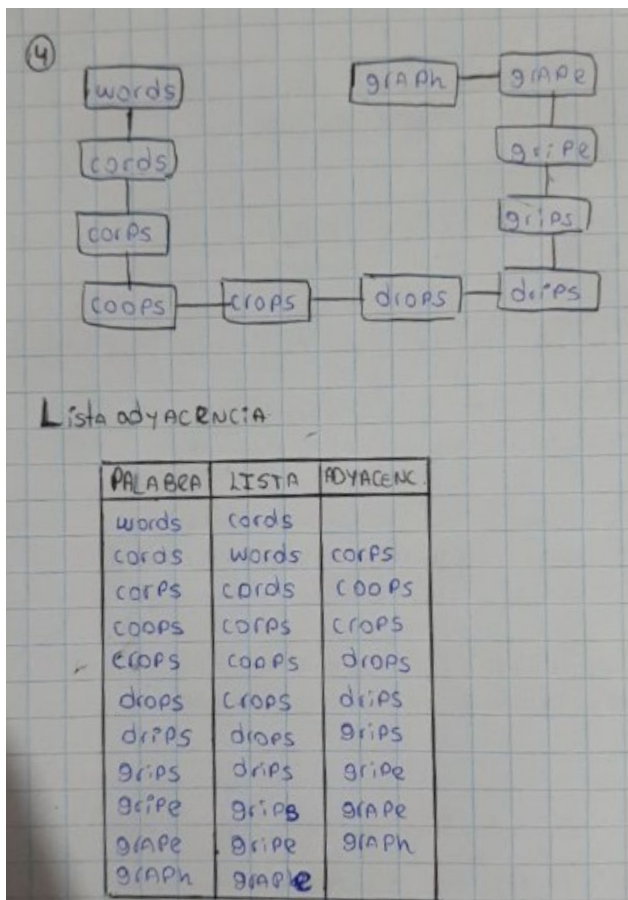 4
words grAPh grAPe
cords gripe
corps grips
coops crops drops drips
Lista adyACENCiA
PALABRA LISTA ADYACENC.
words cords
cords words corps
corps cords coops
coops corps crops
crops coops drops
drops crops drips
drips drops grips
grips drips gripe
gripe grips grAPe
grAPe gripe grAPh
grAPh grAPe